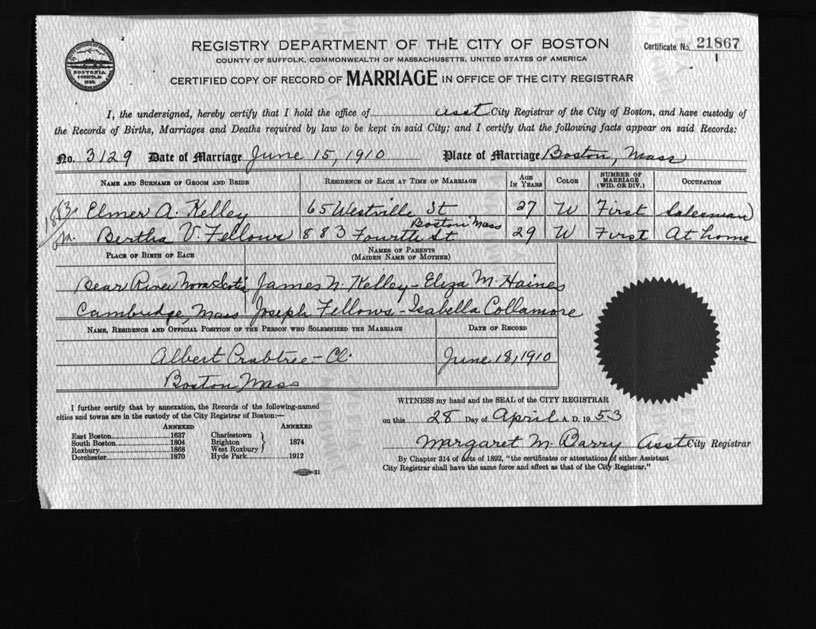 REGISTRY DEPARTMENT OF THE CITY OF BOSTON
Certificate No. 21867
COUNTY OF SUFFOLK, COMMONWEALTH OF MASSACHUSETTS, UNITED STATES OF AMERICA
CERTIFIED COPY OF RECORD OF MARRIAGE IN OFFICE OF THE CITY REGISTRAR
I, the undersigned, hereby certify that I hold the office of asst City Registrar of the City of Boston, and have custody of
the Records of Births, Marriages and Deaths required by law to be kept in said City; and I certify that the following facts appear on said Records:
No. 3129 Date of Marriage June 15, 1910 Place of Marriage Boston, Mass
NAME AND SURNAME OF GROOM AND BRIDE RESIDENCE OF EACH AT TIME OF MARRIAGE AGE IN YEARS COLOR NUMBER OF MARRIAGE (WID. OR DIV.) OCCUPATION
Elmer A. Kelley 65 Westville St 27 W First Salesman
Boston Mass
Bertha V. Fellows 883 Fourth St 29 W First At home
PLACE OF BIRTH OF EACH NAMES OF PARENTS (MAIDEN NAME OF MOTHER)
Bear River Nova Scotia James N. Kelley - Eliza M. Haines
Cambridge, Mass Joseph Fellows - Isabella Collamore
NAME, RESIDENCE AND OFFICIAL POSITION OF THE PERSON WHO SOLEMNIZED THE MARRIAGE DATE OF RECORD
Albert Crabtree - Cl. June 18, 1910
Boston Mass
I further certify that by annexation, the Records of the following-named
cities and towns are in the custody of the City Registrar of Boston:—
ANNEXED ANNEXED
East Boston 1637 Charlestown
South Boston 1804 Brighton 1874
Roxbury 1868 West Roxbury
Dorchester 1870 Hyde Park 1912
31
WITNESS my hand and the SEAL of the CITY REGISTRAR
on this 28 Day of April A. D. 1953
Margaret M. Barry asst City Registrar
By Chapter 314 of Acts of 1892, "the certificates or attestations of either Assistant
City Registrar shall have the same force and effect as that of the City Registrar."